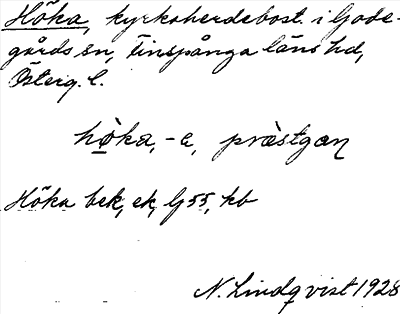 Höka, kyrkoherdebost. i Gode-
gårds sn, Finspånga läns hd,
Österg. l.
hø̀ka, -a, præ̀stgan
Höka bek, ek, G 55, kb
N. Lindqvist 1928